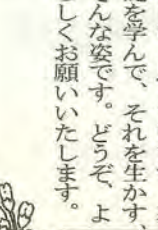 を学んで、それを生かす、
んな姿です。どうぞ、よ
しくお願いいたします。